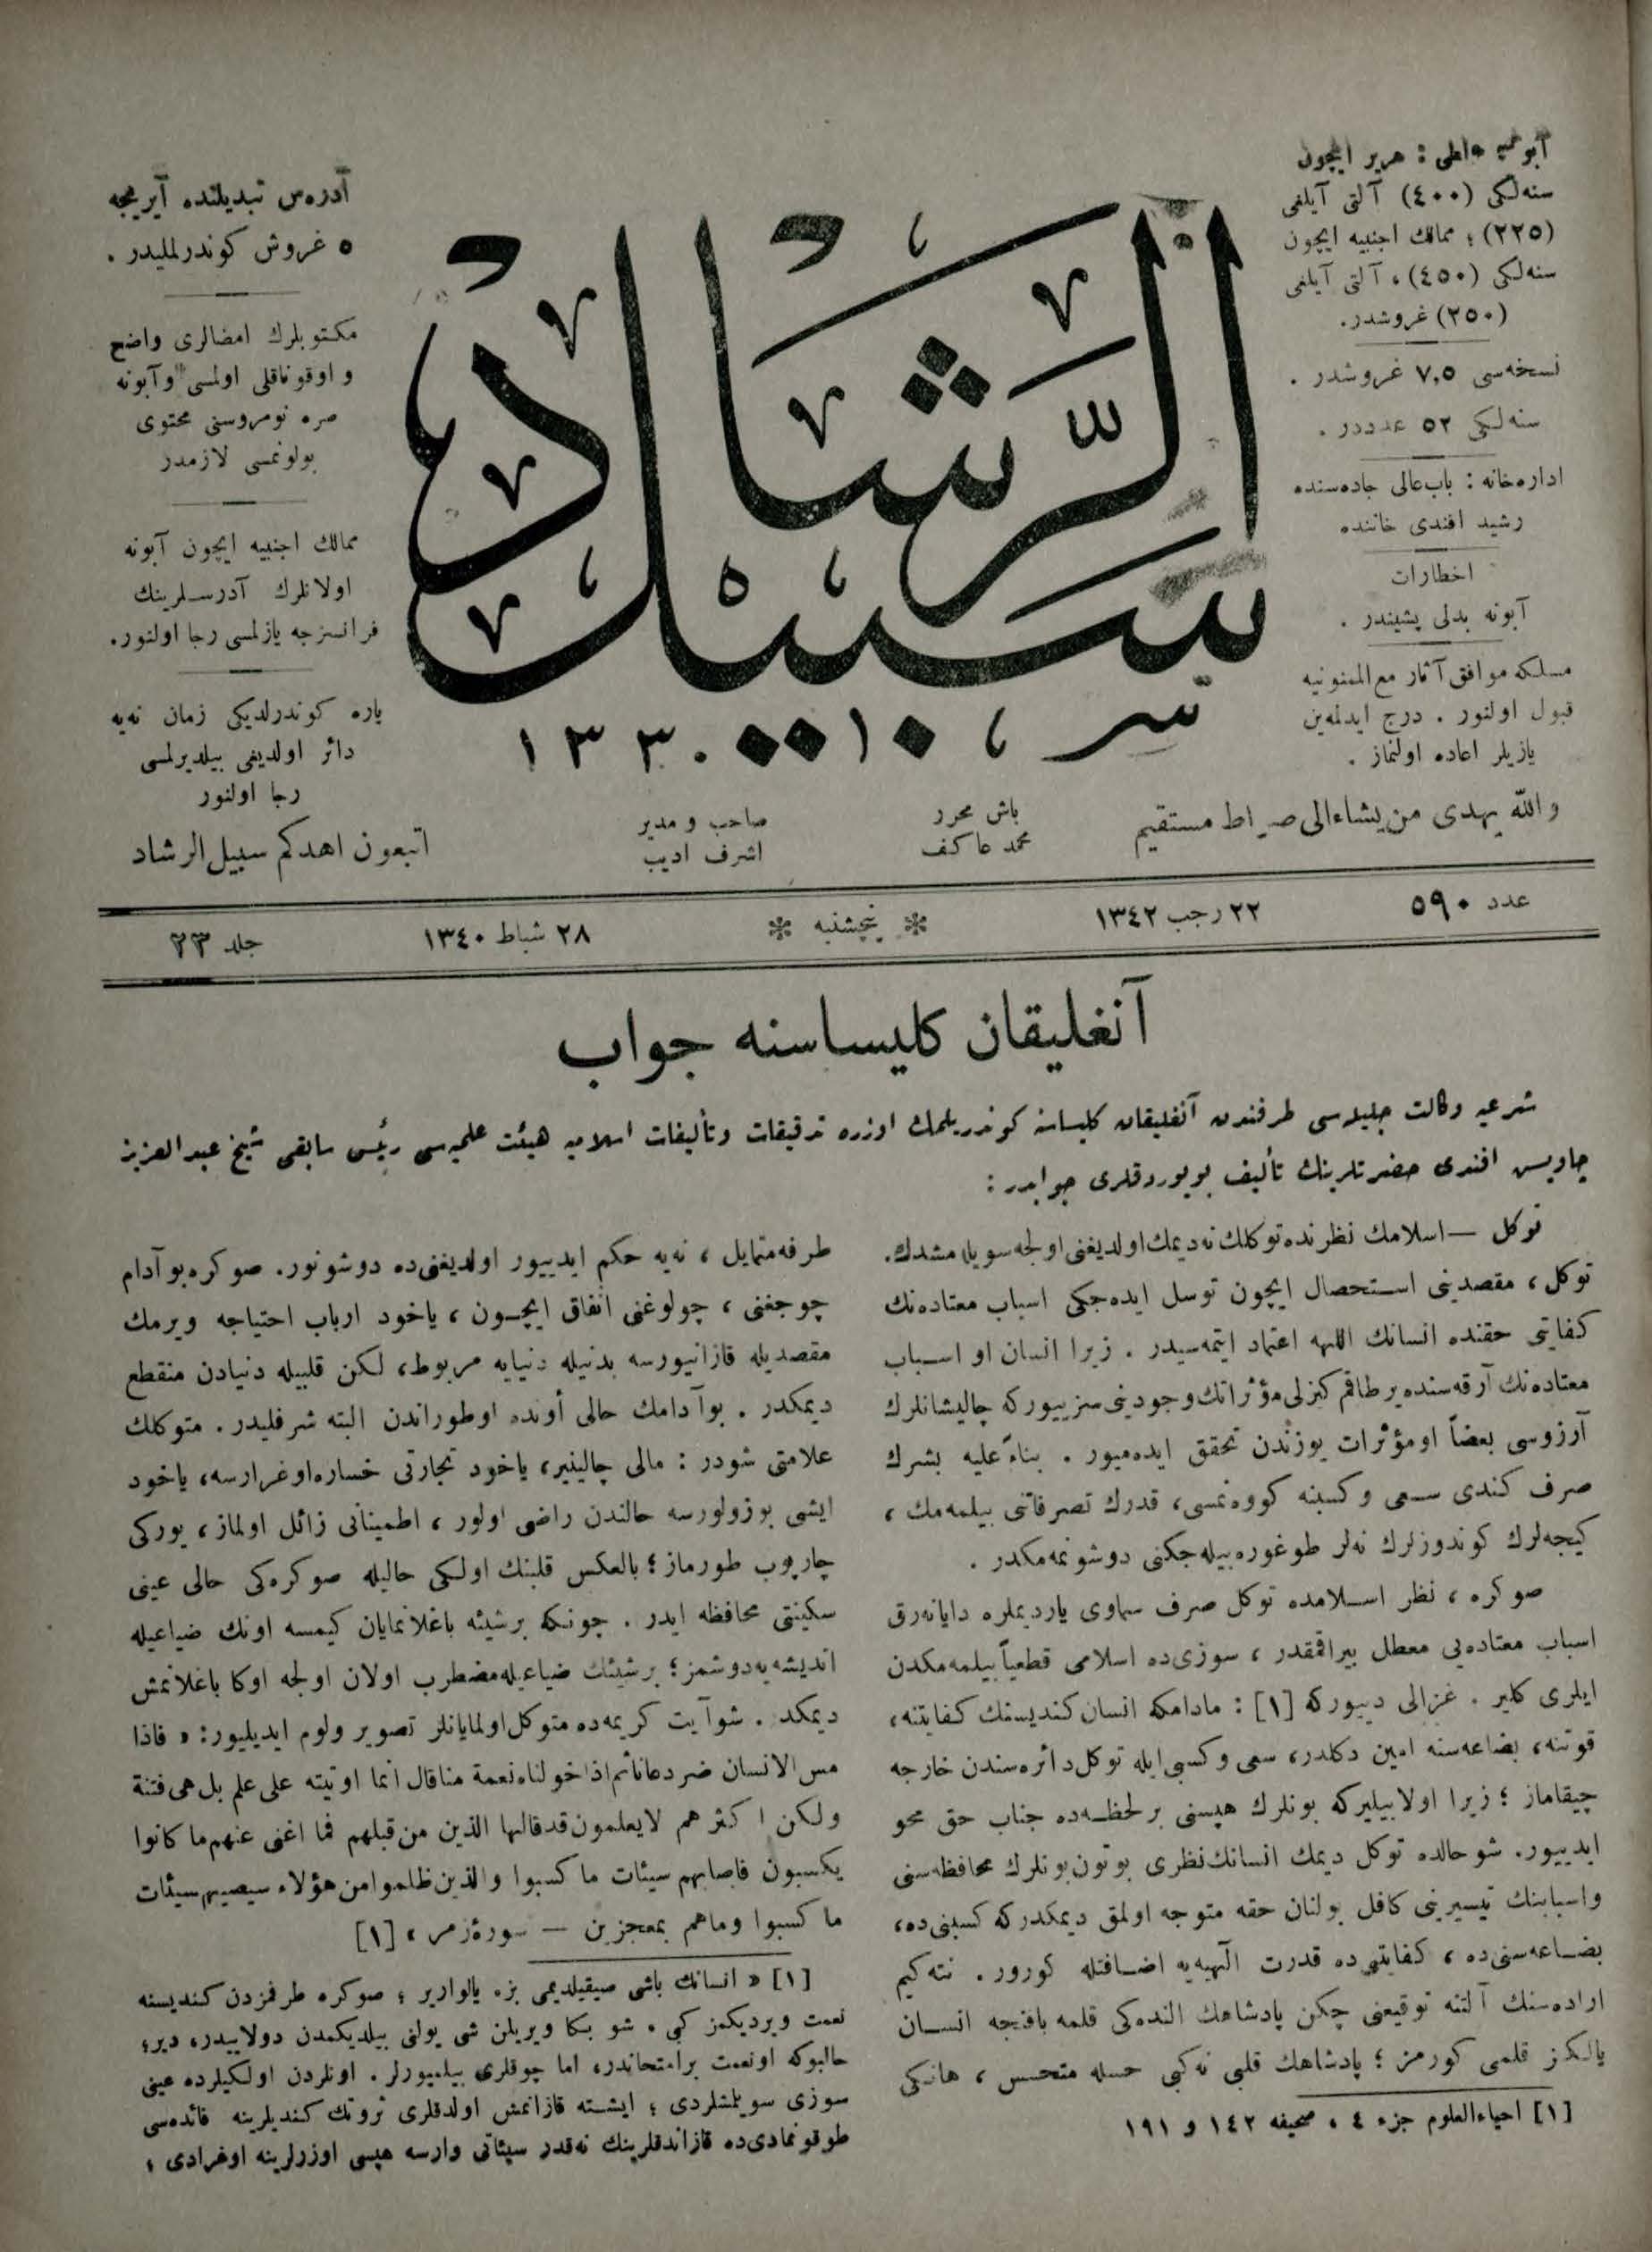 آبونه شرائطی : هر یر ایچون
سنه‌لکی (٤٠٠) آلتی آیلغی
(٢٢٥) ؛ ممالك اجنبیه ایچون
سنه‌لکی (٤٥٠) ، آلتی آیلغی
(٢٥٠) غروشدر.
نسخه‌سی ٧,٥ غروشدر .
سنه‌لکی ٥٢ عدددر .
اداره‌خانه : باب‌عالی جاده‌سنده
رشید افندی خاننده
اخطارات
آبونه بدلی پشیندر .
مسلکه موافق آثار مع‌الممنونیه
قبول اولنور . درج ایدلمه‌ین
یازیلر اعاده اولنماز .
سبیل الرشاد
١٣٣٠
آدره‌س تبدیلنده آیریجه
٥ غروش کوندرلملیدر .
مکتوبلرك امضالری واضح
و اوقوناقلی اولمسی وآبونه
صره نومروسنی محتوی
بولونمسی لازمدر
ممالك اجنبیه ایچون آبونه
اولانلرك آدرسلرینك
فرانسزجه یازلمسی رجا اولنور.
پاره کوندرلدیکی زمان نه‌یه
دائر اولدیغی بیلدیرلمسی
رجا اولنور
والله یهدی من یشاء الی صراط مستقیم
باش محرر
محمد عاکف
صاحب و مدیر
اشرف ادیب
اتبعون اهدکم سبیل الرشاد
عدد ٥٩٠
٢٢ رجب ١٣٤٢
پنجشنبه
٢٨ شباط ١٣٤٠
جلد ٢٣
آنغلیقان کلیساسنه جواب
شرعیه وکالت جلیله‌سی طرفندن آنغلیقان کلیساسنه کوندریلمك اوزره تدقیقات وتألیفات اسلامیه هیئت علمیه‌سی رئیس سابقی شیخ عبدالعزیز
چاویس افندی حضرتلرینك تألیف بویوردقلری جوابدر :
توکل — اسلامك نظرنده توکلك نه دیمك اولدیغنی اولجه سویله‌مشدك.
توکل ، مقصدینی استحصال ایچون توسل ایده‌جکی اسباب معتاده‌نك
کفایتی حقنده انسانك اللهه اعتماد ایتمه‌سیدر . زیرا انسان او اسباب
معتاده‌نك آرقه‌سنده بر طاقم کیزلی مؤثراتك وجودینی سزییور که چالیشانلرك
آرزوسی بعضاً او مؤثرات یوزندن تحقق ایده‌میور . بناءً علیه بشرك
صرف کندی سعی وکسبنه کووه‌نمسی، قدرك تصرفاتنی بیلمه‌مك ،
کیجه‌لرك کوندوزلرك نه‌لر طوغوره‌بیله‌جکنی دوشونمه‌مکدر .
صوکره ، نظر اسلامده توکل صرف سماوی یاردیملره دایانه‌رق
اسباب معتاده‌یی معطل بیراقمقدر ، سوزی‌ده اسلامی قطعیاً بیلمه‌مکدن
ایلری کلیر . غزالی دییور که [١] : مادامکه انسان کندیسنك کفایتنه،
قوتنه، بضاعه‌سنه امین دکلدر، سعی وکسبی ایله توکل دائره‌سندن خارجه
چیقاماز ؛ زیرا اولابیلیر که بونلرك هپسنی بر لحظه‌ده جناب حق محو
ایدییور. شو حالده توکل دیمك انسانك نظری بوتون بونلرك محافظه‌سنی
واسبابنك تیسیرینی کافل بولنان حقه متوجه اولمق دیمکدر که کسبنی‌ده،
بضاعه‌سنی‌ده ، کفایتنی‌ده قدرت الهیه‌یه اضافتله کورور . نته‌کیم
اراده‌سنك آلتنه توقیعنی چکن پادشاهك النده‌کی قلمه باقنجه انسان
یالکز قلمی کورمز ؛ پادشاهك قلبی نه کبی حسله متحسس ، هانکی
[١] احیاءالعلوم جزء ٤ ، صحیفه ١٤٢ و ١٩١
طرفه متمایل ، نه‌یه حکم ایدییور اولدیغنی‌ده دوشونور. صوکره بو آدام
چوجغنی ، چولوغنی انفاق ایچون ، یاخود ارباب احتیاجه ویرمك
مقصدیله قازانیورسه بدنیله دنیایه مربوط، لکن قلبیله دنیادن منقطع
دیمکدر . بو آدامك حالی أوده اوطوراندن البته شرفلیدر . متوکلك
علامتی شودر : مالی چالینیر، یاخود تجارتی خساره اوغرارسه، یاخود
ایشی بوزولورسه حالندن راضی اولور ، اطمینانی زائل اولماز ، یورکی
چارپوب طورماز ؛ بالعکس قلبنك اولکی حالیله صوکره‌کی حالی عینی
سکینتی محافظه ایدر . چونکه بر شیئه باغلانمایان کیمسه اونك ضیاعیله
اندیشه‌یه دوشمز ؛ بر شیئك ضیاعیله مضطرب اولان اولجه اوکا باغلانمش
دیمکدر . شو آیت کریمه‌ده متوکل اولمایانلر تصویر ولوم ایدیلیور: « فاذا
مس الانسان ضر دعانا ثم اذا خولناه نعمة منا قال انما اوتیته علی علم بل هی فتنة
ولکن اکثرهم لا یعلمون قد قالها الذین من قبلهم فما اغنی عنهم ما کانوا
یکسبون فاصابهم سیئات ما کسبوا والذین ظلموا من هؤلاء سیصیبهم سیئات
ما کسبوا وماهم بمعجزین — سورهٔ زمر » [١]
[١] « انسانك باشی صیقیلدیمی بزه یالواریر ؛ صوکره طرفمزدن کندیسنه
نعمت ویردیکمز کبی ، شو بکا ویریلن شی یولنی بیلدیکمدن دولاییدر، دیر؛
حالبوکه او نعمت بر امتحاندر، اما چوقلری بیلمیورلر . اونلردن اولکیلرده عینی
سوزی سویلمشلردی ؛ ایشته قازانمش اولدقلری ثروتك کندیلرینه فائده‌سی
طوقونمادی‌ده قازاندقلرینك نه‌قدر سیئاتی وارسه هپسی اوزرلرینه اوغرادی ؛